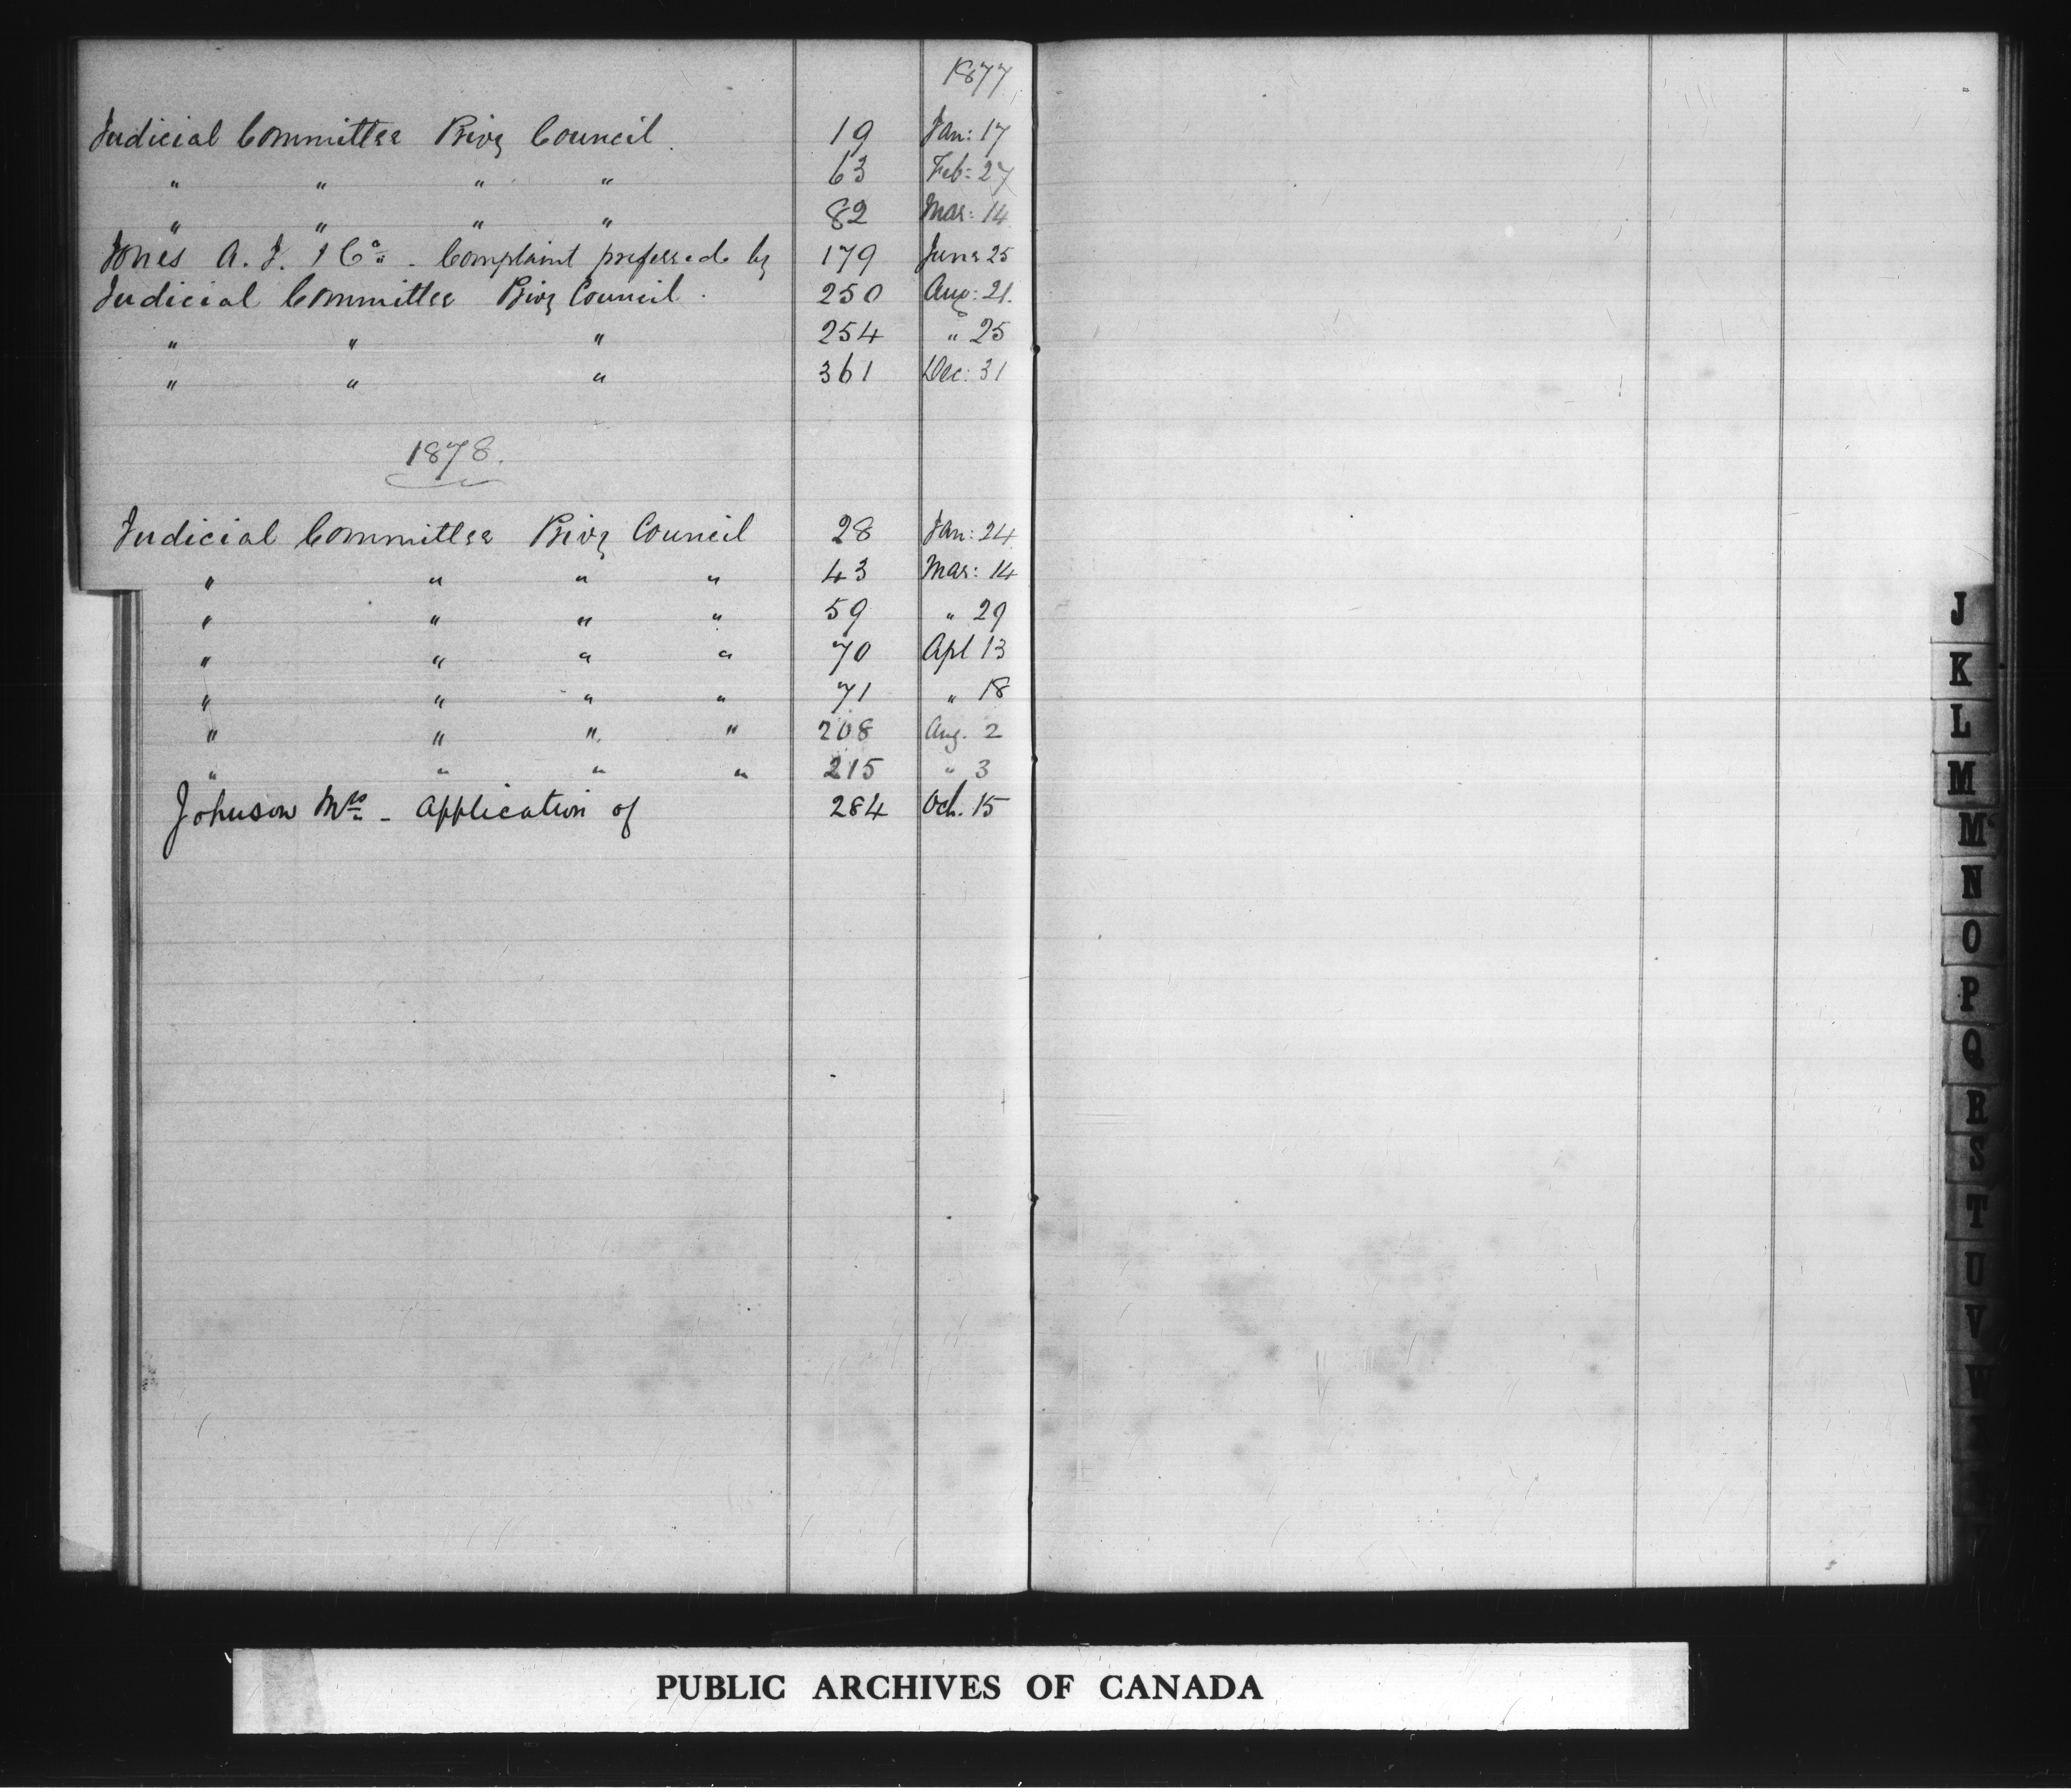 1877
Judicial Committee Privy Council. 19 Jan: 17
" " " " 63 Feb: 27
" " " " 82 Mar: 14
Jones A. J. & Co. - Complaint preferred by 179 June 25
Judicial Committee Privy Council. 250 Aug: 21.
" " " 254 " 25
" " " 361 Dec: 31
1878.
Judicial Committee Privy Council 28 Jan: 24
" " " " 43 Mar: 14
" " " " 59 " 29
" " " " 70 Apl 13
" " " " 71 " 18
" " " " 208 Aug. 2
" " " " 215 " 3
Johnson Mrs - Application of 284 Oct. 15
J
K
L
M
Mc
N
O
P
Q
R
S
T
U
V
W
PUBLIC ARCHIVES OF CANADA